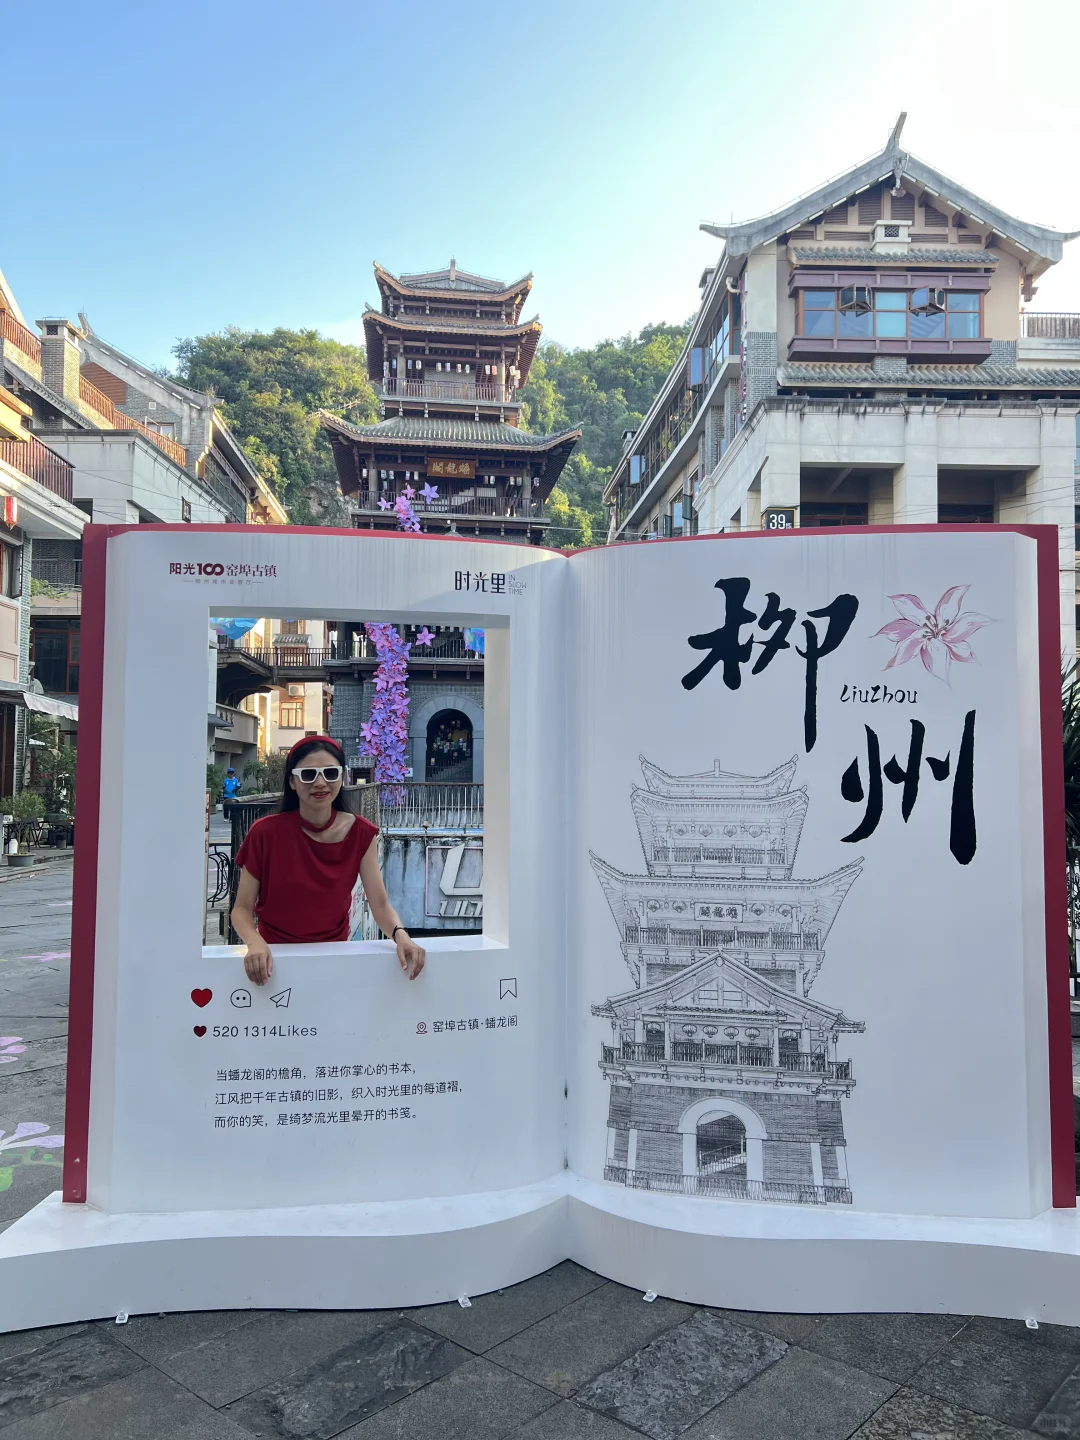 蟠龍閣
39
阳光100窑埠古镇
时光里
IN
SLOW
TIME
柳
LiuZhou
州
蟠龍閣
520 1314Likes
窑埠古镇·蟠龙阁
当蟠龙阁的檐角，落进你掌心的书本，
江风把千年古镇的旧影，织入时光里的每道褶，
而你的笑，是绮梦流光里晕开的书笺。